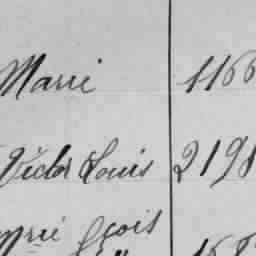 Marie 1166
Victor Louis 2198
Mrie fçois 168